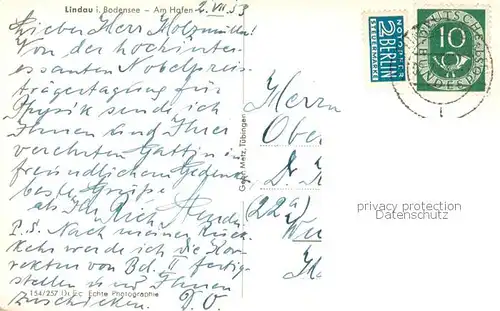 Lindau i. Bodensee — Am Hafen 2. VII 53
Lieber Herr Holzmüller!
Von der hochinter-
essanten Nobelpreis-
trägertagung für
Physik sende ich
Ihnen und Ihrer
verehrten Gattin in
freundlichem Gedenken
beste Grüße
als Ihr Erich
P.S. Nach meiner Rück-
kehr werde ich die Kor-
rektur von Bd. II fertig-
stellen und Ihnen
zuschicken. D. O.
154/257 Echte Photographie
Gebr. Metz, Tübingen
NOTOPFER
2 BERLIN
STEUERMARKE
10
DEUTSCHE
BUNDESPOST
Herrn
Ober
Dr.
(22a)
privacy protection
Datenschutz